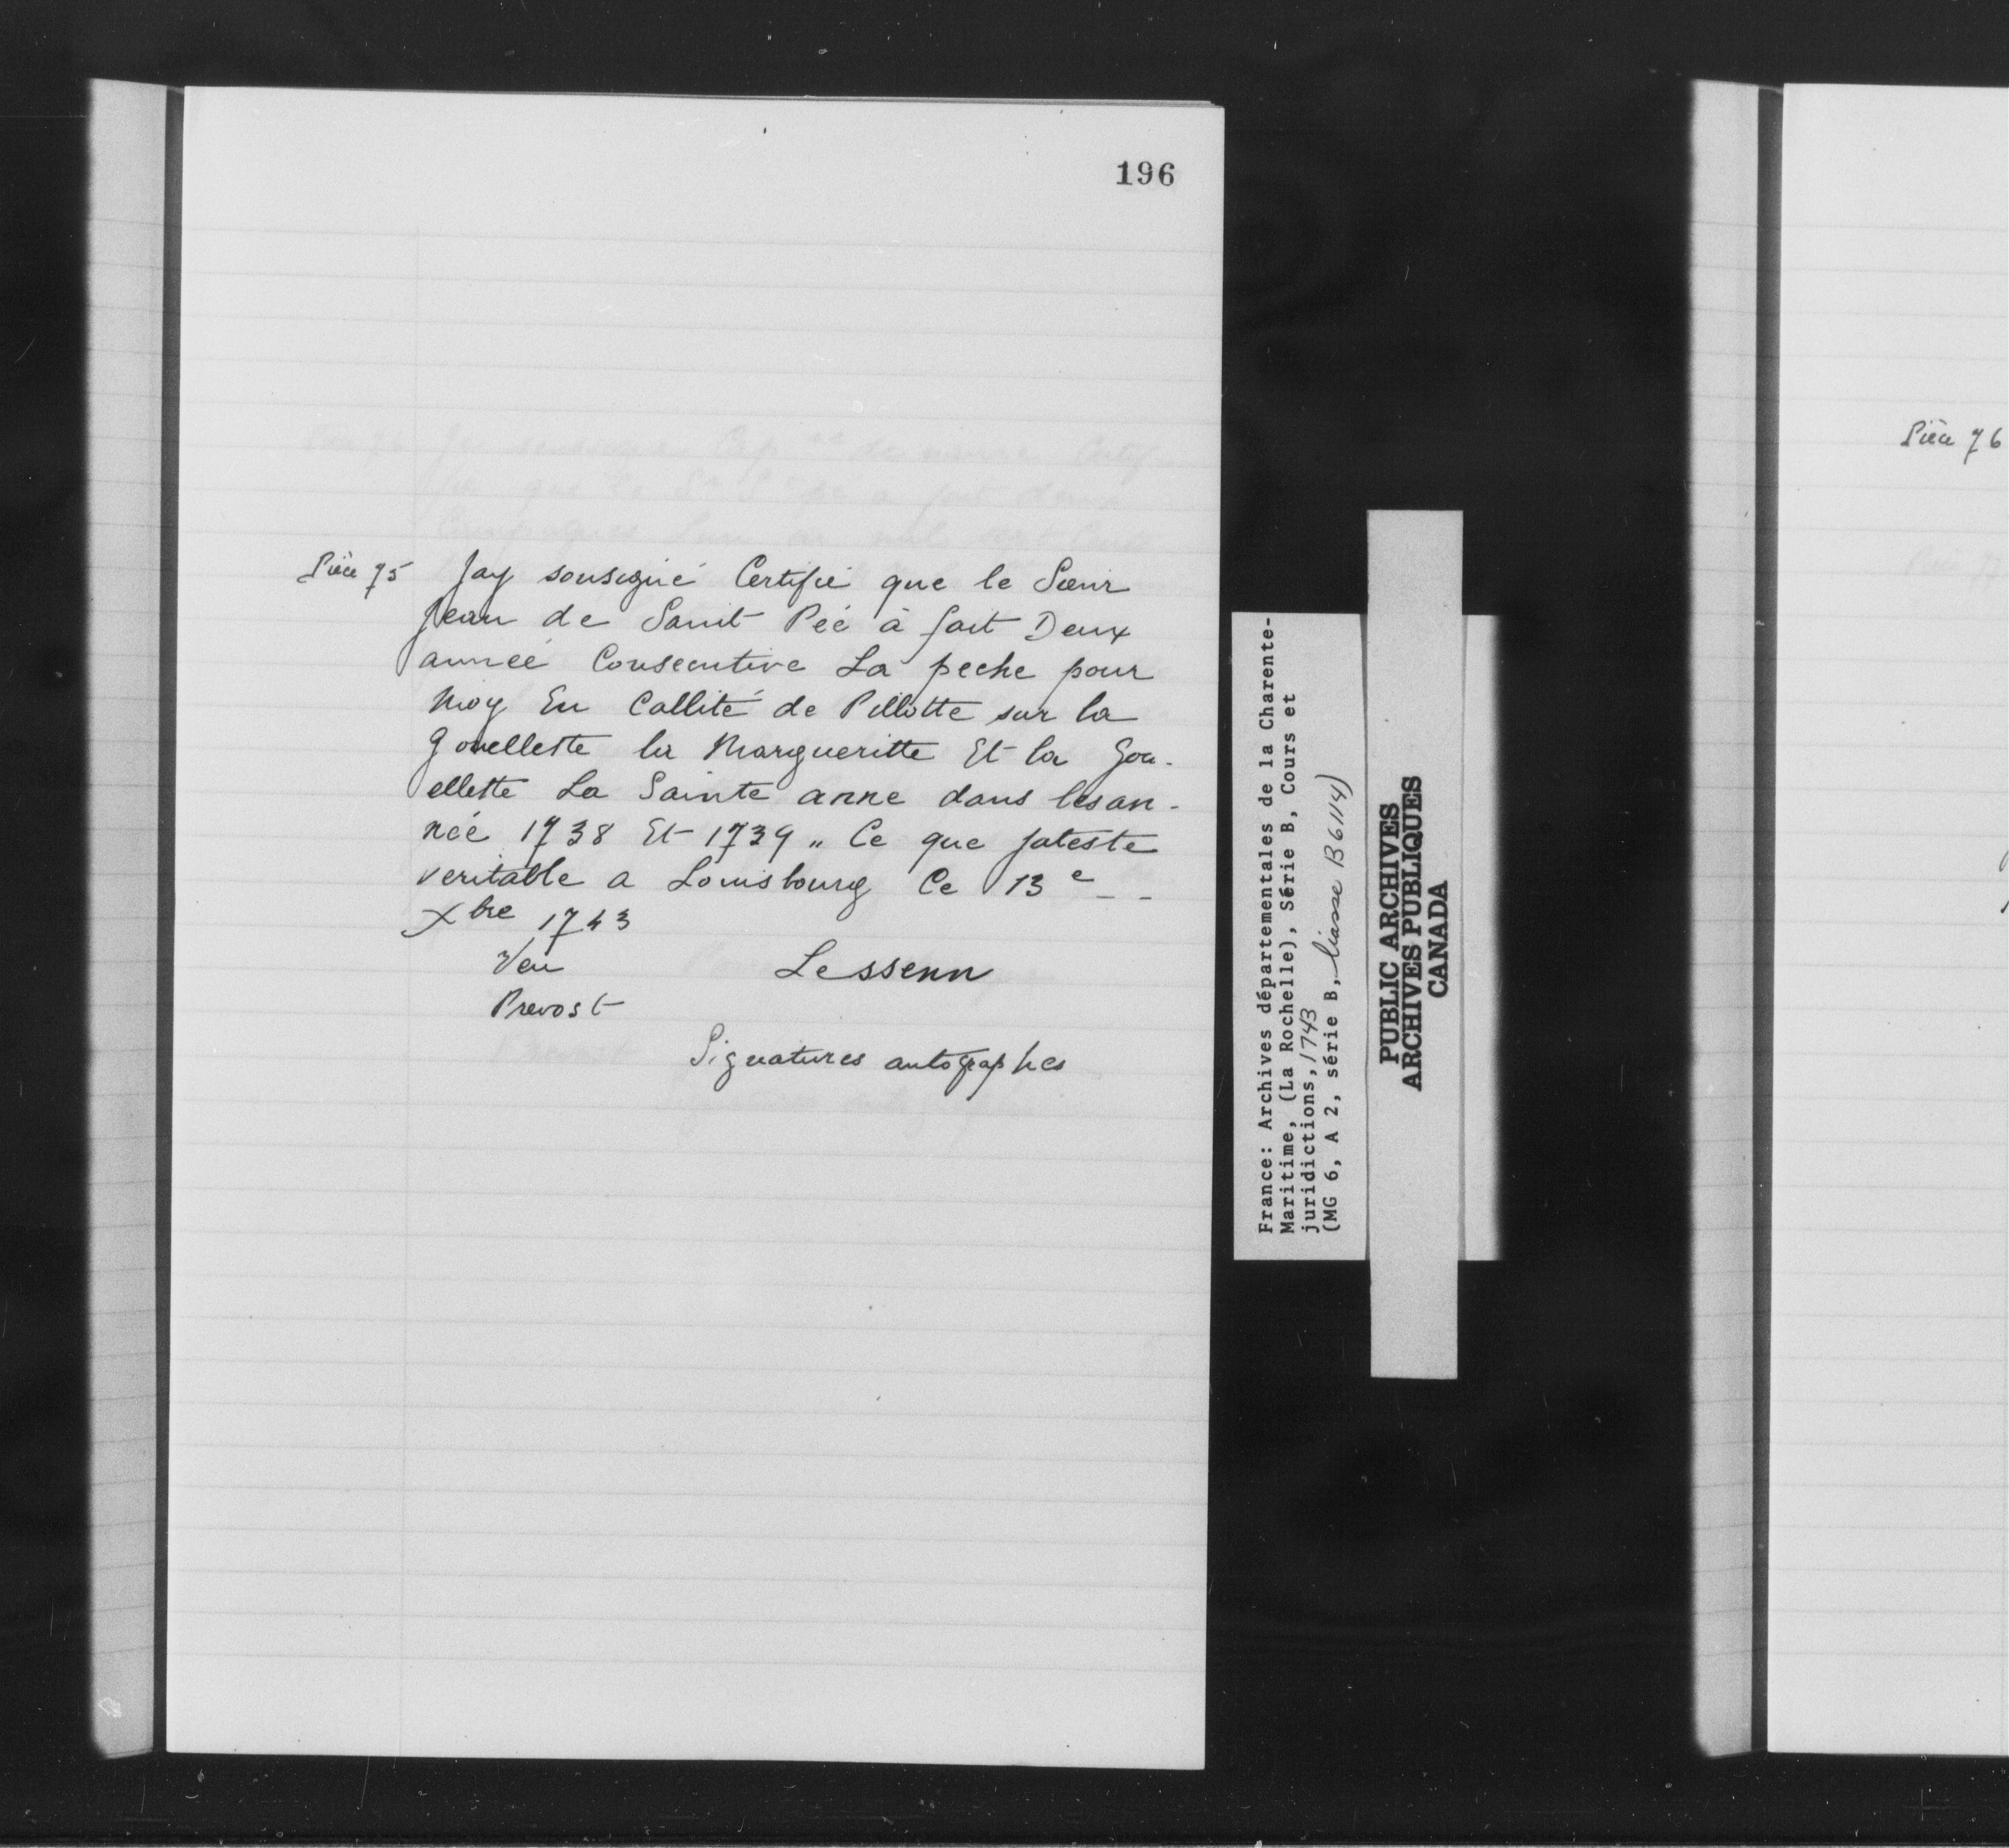 196
Pièce 75 Jay sousigné Certifié que le Sœur
Jean de Sanit Péé à fait Deux
année Consecutive La peche pour
Moy En Callité de Pillotte sur la
gouelleste la Margueritte Et la Gou-
ellette La Sainte anne dans lesan-
néé 1738 Et 1739 „ Ce que jateste
veritable a Louisbourg Ce 13e - -
Xbre 1743
Veu Lessenn
Prevost
Signatures autographes
France: Archives départementales de la Charente-
Maritime, (La Rochelle), Série B, Cours et
juridictions, 1743
(MG 6, A 2, série B, liasse B6114)
PUBLIC ARCHIVES
ARCHIVES PUBLIQUES
CANADA
Pièce 76